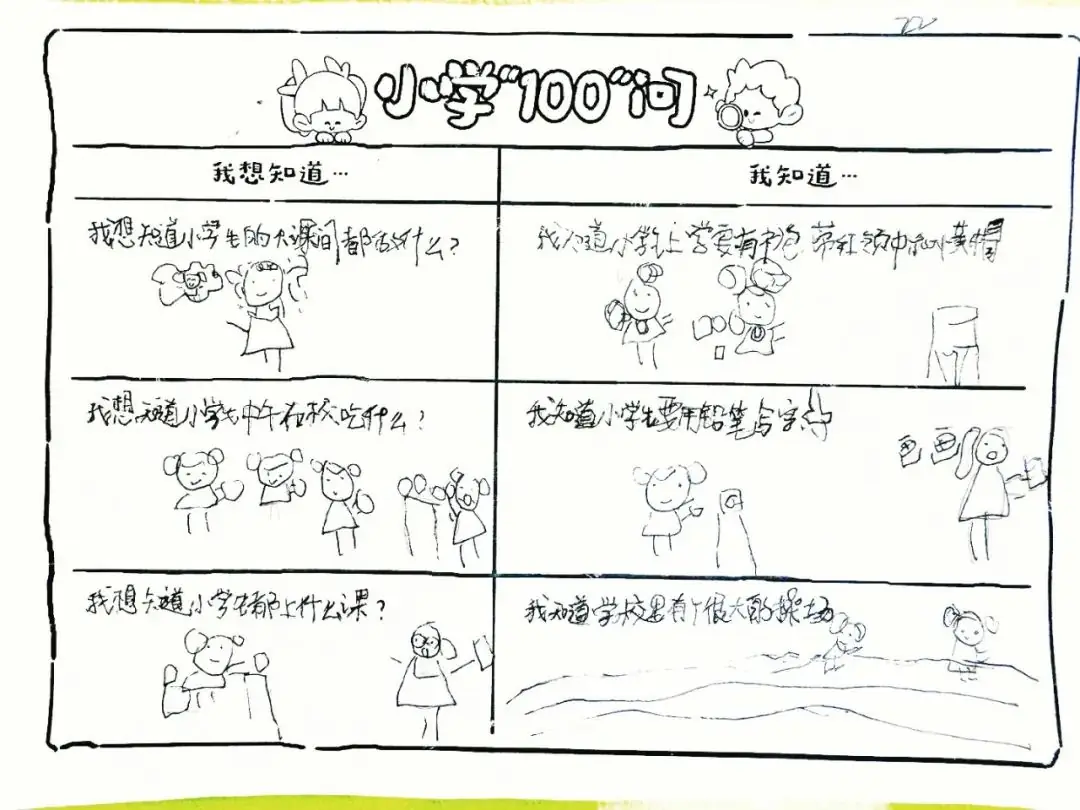 小学“100”问
我想知道…
我知道…
我想知道小学生的大课间都做什么？
我知道小学生上学要有书包 带红领巾和小黄帽
我想知道小学生中午在校吃什么？
我知道小学生要用铅笔写字
我想知道小学生都上什么课？
我知道学校里有个很大的操场